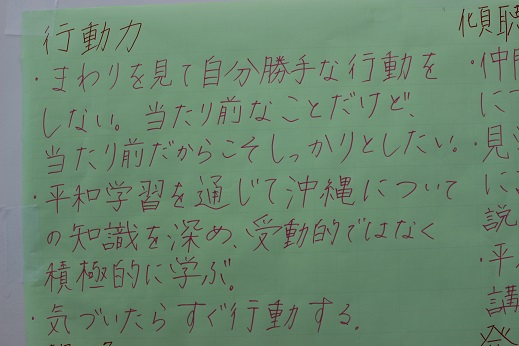 行動力
・まわりを見て自分勝手な行動を
しない。当たり前なことだけど、
当たり前だからこそしっかりとしたい。
・平和学習を通じて沖縄について
の知識を深め、受動的ではなく
積極的に学ぶ。
・気づいたらすぐ行動する。
傾聴
・仲間
に
・見
に
説
・平
講